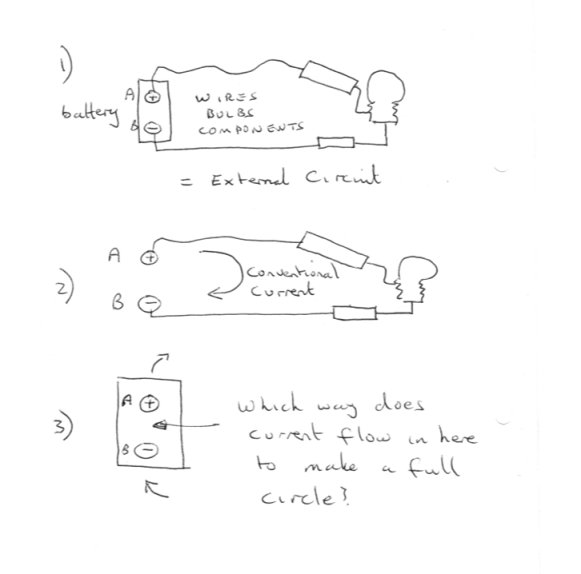 1)
A +
WIRES
battery
BULBS
B -
COMPONENTS
= External Circuit
A +
Conventional
2)
B -
Current
A +
Which way does
3)
current flow in here
B -
to make a full
circle?